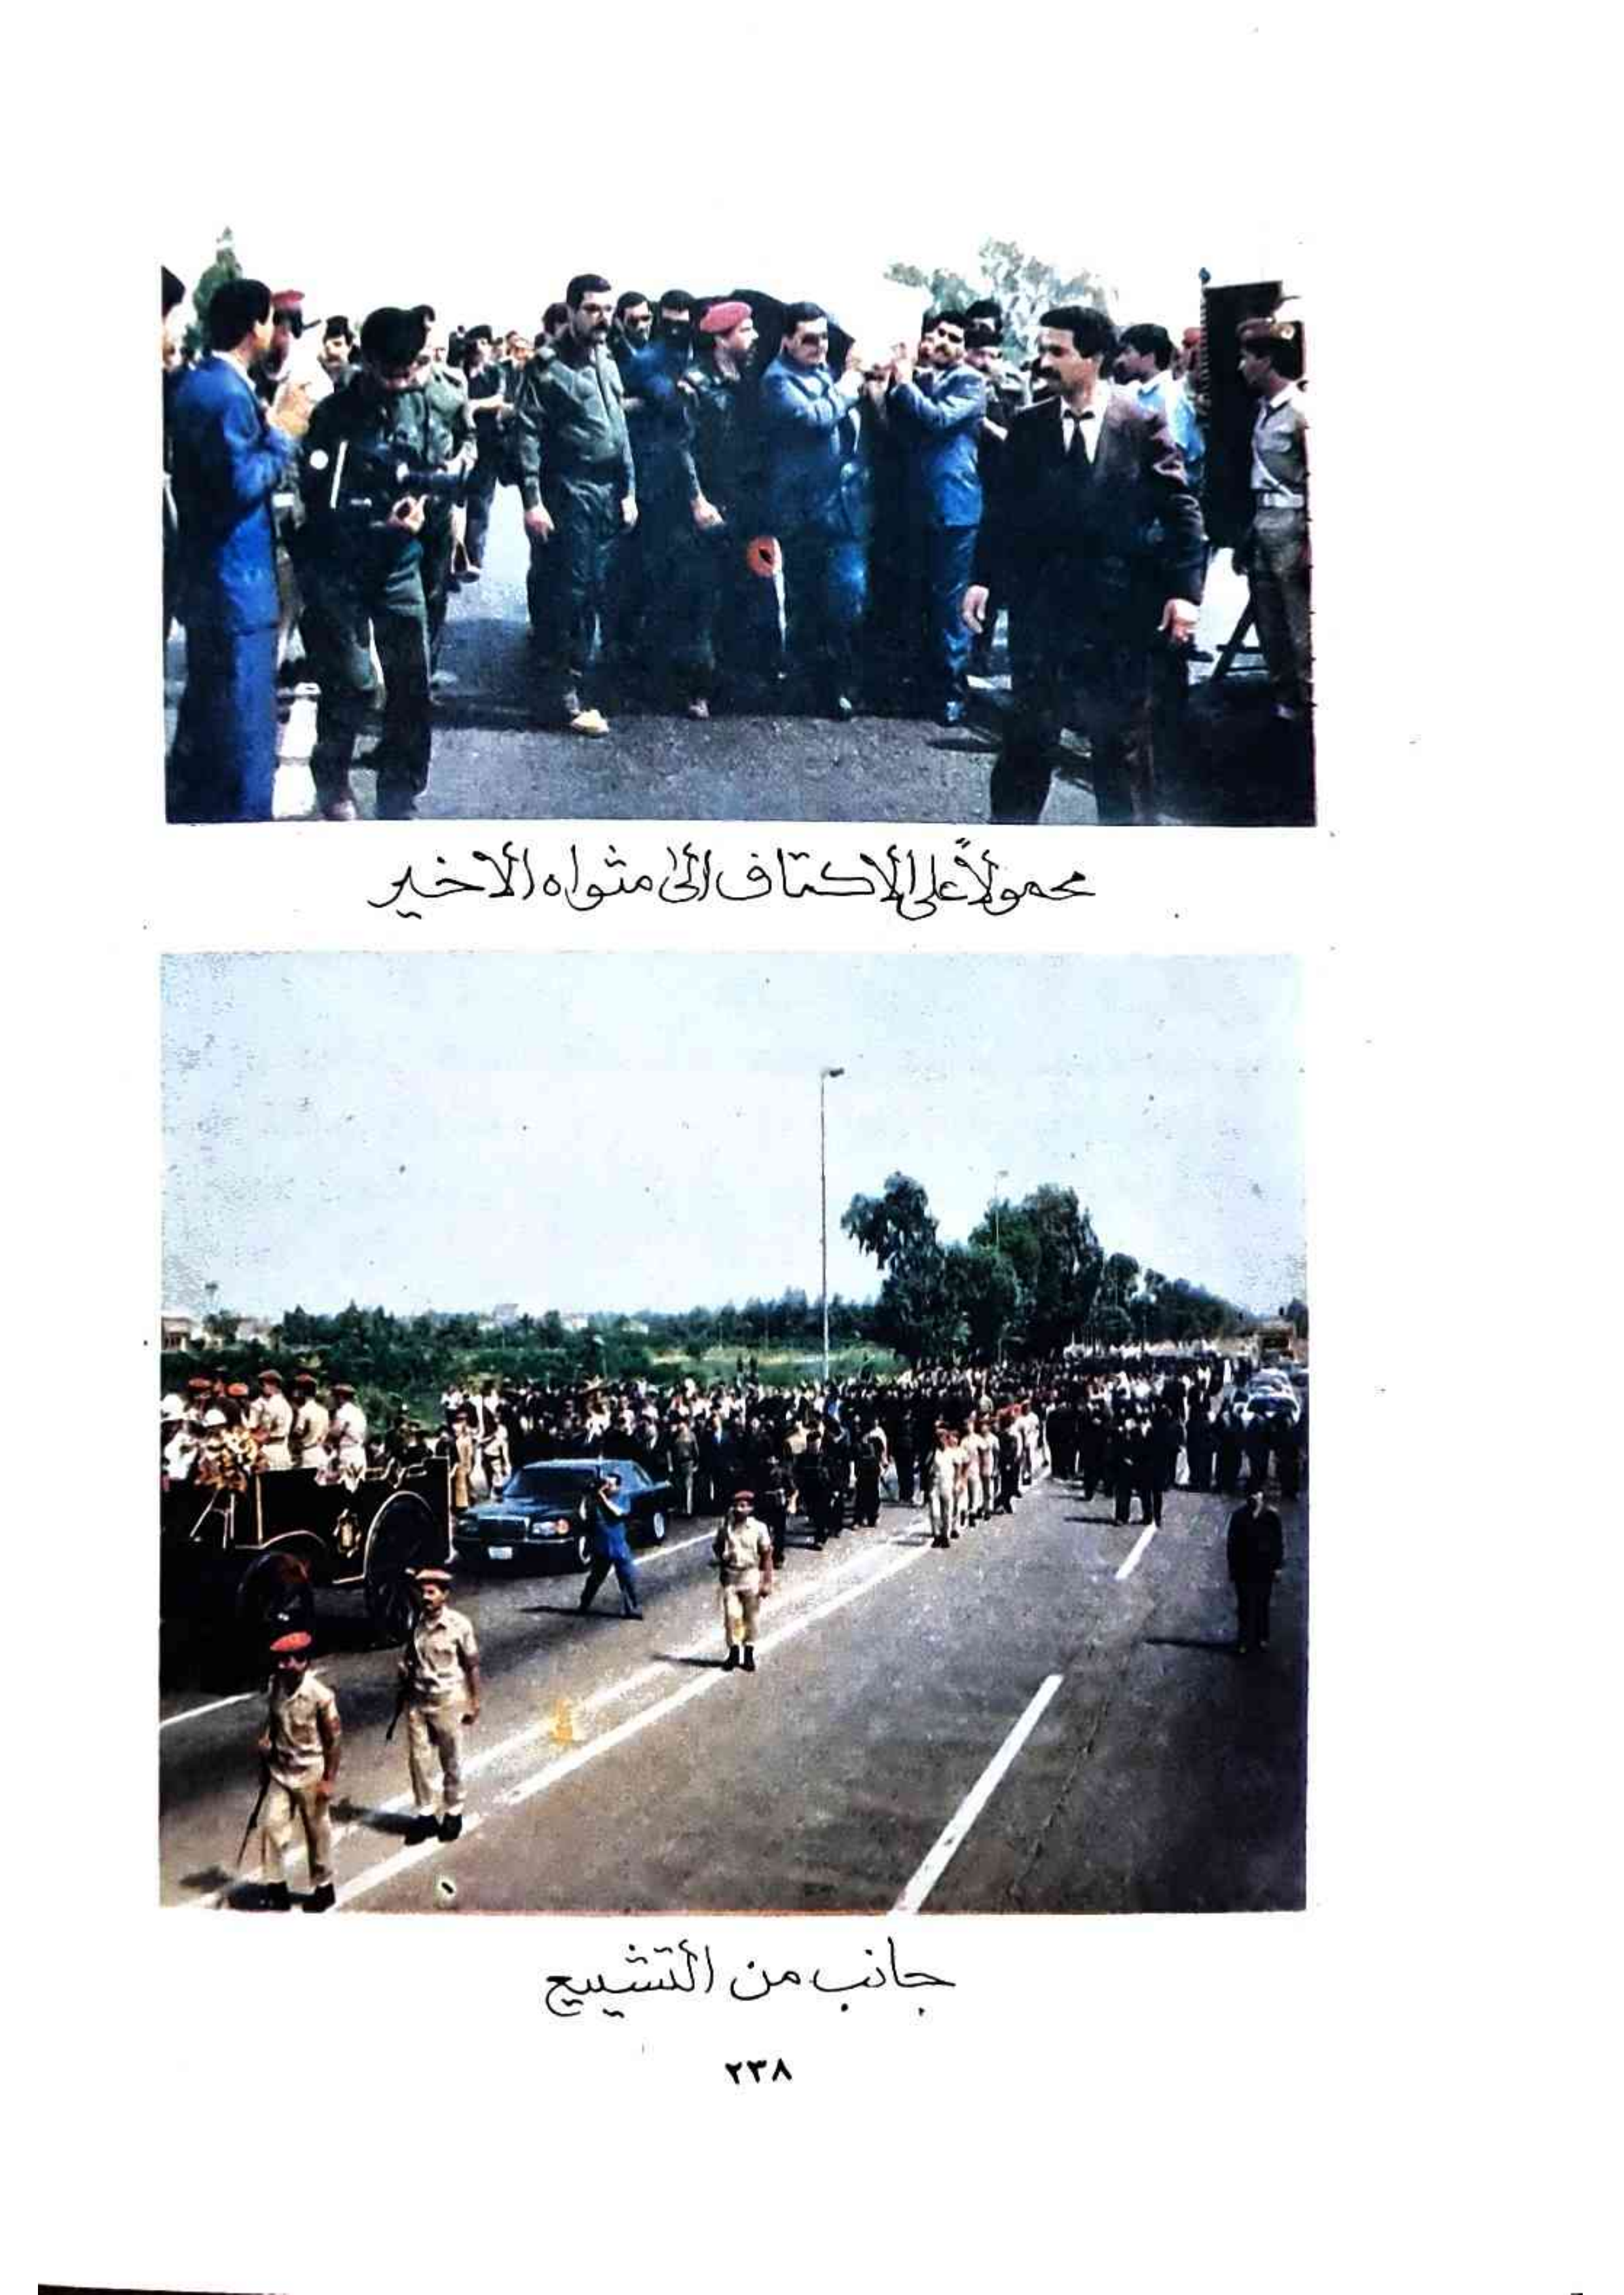 محمولاً على الاكتاف الى مثواه الاخير
جانب من التشييع
٢٣٨